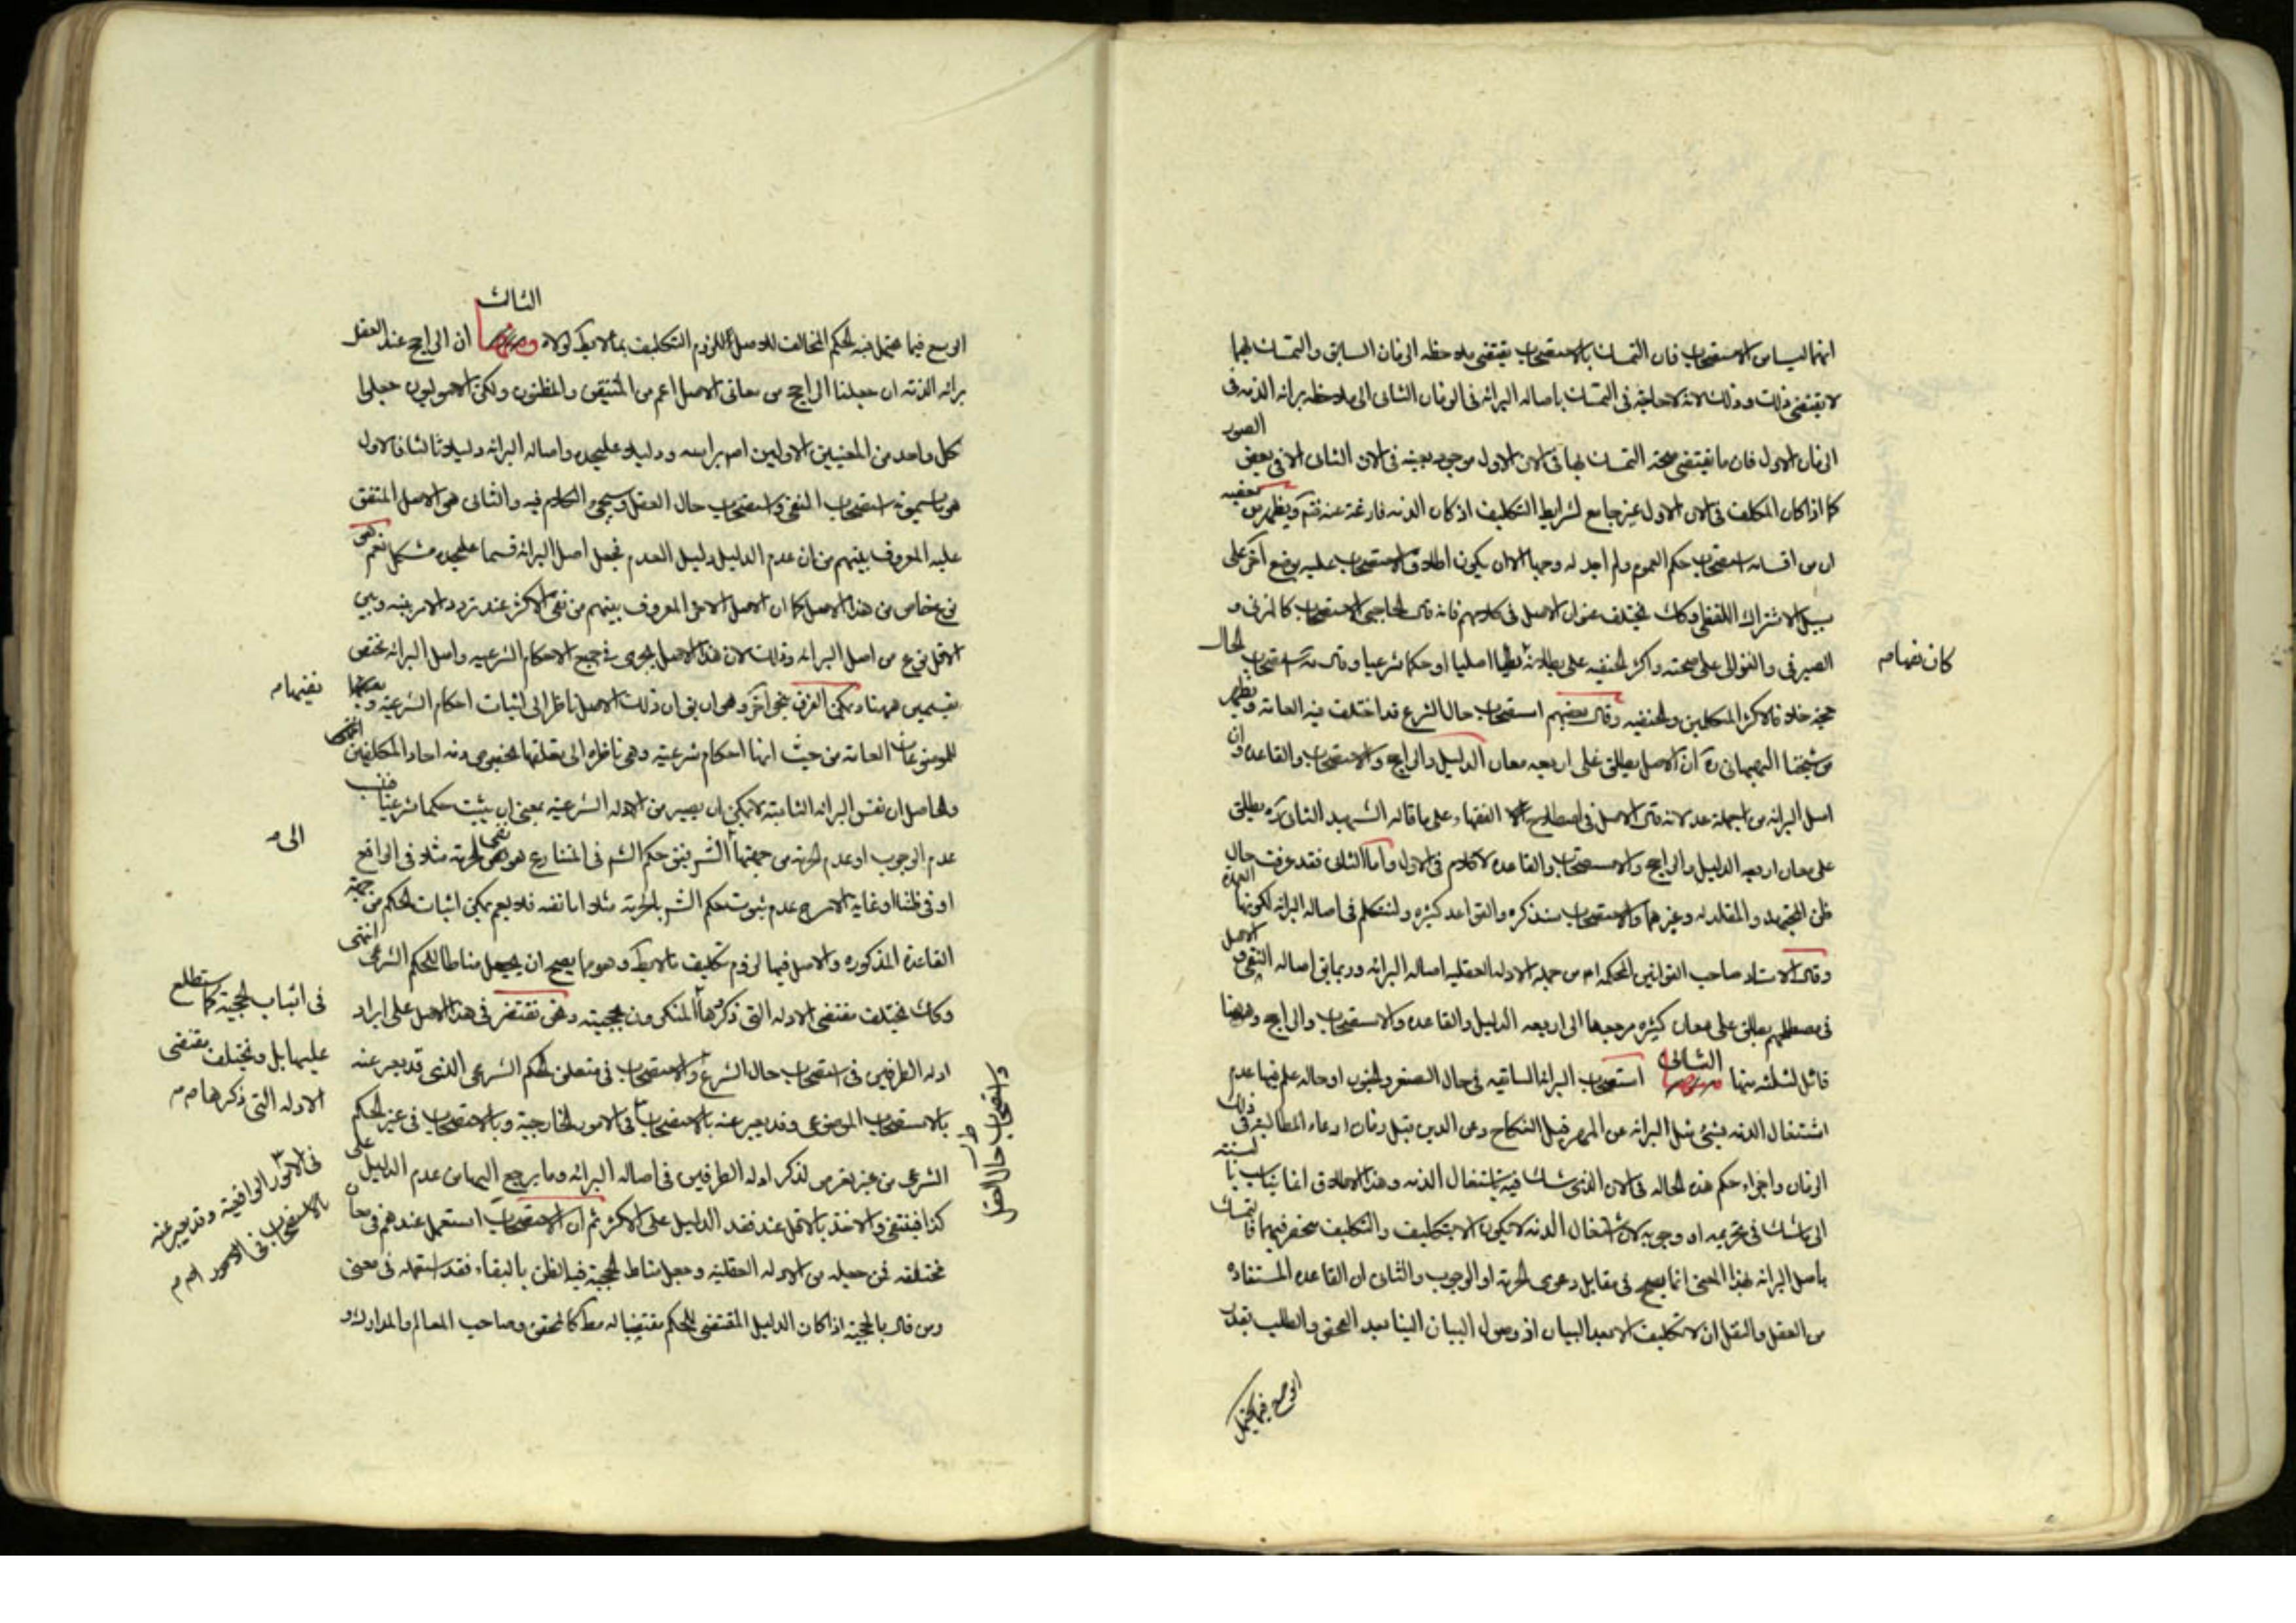 انهما ليسا من الاستصحاب فان التمسك بالاستصحاب يقتضي ملاحظه الزمان السابق والتمسك بهما
لا يقتضي ذلك وذلك لانه لا حاجة في التمسك باصالة البرائه في الزمان الثاني الى ملاحظه برائه الذمه في
الزمان الاول فان ما يقتضي صحة التمسك بها في الان الاول موجود بعينه في الان الثاني الا في بعض الصور
كما اذا كان المكلف في الان الاول غير جامع لشرايط التكليف اذ كان الذمه فارغة عنه فتم ويظهر من بعضهم
ان من اقسامه استصحاب حكم العموم ولم اجد له وجها الا ان يكون اطلاق الاستصحاب عليه بوضع آخر على
سبيل الاشتراك اللفظي وكك يختلف عنوان الاصل في كلامهم فانه قال الحاجبي الاستصحاب كالمزني و
الصيرفي والغزالي على صحته واكثر الحنفيه على بطلانه اصليا او حكما شرعيا وقال استصحاب الحال
كان نفيا م
حجة خلافا لاكثر المتكلمين والحنفيه وقال بعضهم استصحاب حال الشرع قد اختلف فيه العامه ويظهر
من شيخنا البهبهاني ره ان الاصل يطلق على اربعه معان الدليل والراجح والاستصحاب والقاعده وان
اصل البرائه من الجملة عده لانه قال الاصل في اصطلاح الفقهاء على ما قاله الشهيد الثاني ره يطلق
على معان اربعه الدليل والراجح والاستصحاب والقاعده لا كلام في الاول واما الثاني فقد عرفت حال
ظن المجتهد والمقلد له وغيرهما والاستصحاب سنذكره والقواعد كثيره ولنتكلم في اصالة البرائه لكونها العمدة
وقال الاستاد صاحب القوانين المحكمه من جمله الادله العقليه اصاله البرائه وربما يق اصاله النفي و الاصل
في مصطلحهم يطلق على معان كثيره مرجعها الى اربعه الدليل والقاعده والاستصحاب والراجح وههنا
قابل لثلثه منها الثاني استصحاب البرائه السابقه في حال الصغر والجنون او حاله علم فيها عدم
اشتغال الذمه بشيء مثل البرائه عن المهر قبل النكاح وعن الدين قبل زمان ادعاء المطالبه في ذلك
الزمان واجراء حكم هذه الحاله في الان الذي شك فيه باشتغال الذمه وهذا الاطلاق انما يناسب بالنسبه
الى ما شك في تحريمه او وجوبه لان اشتغال الذمه لا يكون الا بتكليف والتكليف منحصر فيهما فالتمسك
باصل البرائه بهذا المعنى انما يصح في مقابل دعوى الحرمة او الوجوب والثالث ان القاعده المستفاده
من العقل والنقل ان لا تكليف الا بعد البيان او وصول البيان الينا بعد الفحص والطلب بقدر
الوسع فيما يحتمل
الثالث
الوسع فيما يحتمل فيه الحكم المخالف للاصل للزوم التكليف بما لا يطاق لولاه ان الراجح عند العقل
برائه الذمه ان جعلنا الراجح من معاني الاصل اعم من المتيقن والمظنون ولكن الاصوليون جعلوا
كل واحد من المعنيين الاولين اصلا براسه ودليلا عليحده واصاله البرائه دليلا ثالثا فالاول
هو ما سموه باستصحاب النفي واستصحاب حال العقل وسيجيء الكلام فيه والثاني هو الاصل المتفق
عليه المعروف بينهم من ان عدم الدليل دليل العدم فجعل اصل البرائه قسما عليحده مشكل نعم هي
نوع خاص من هذا الاصل كما ان الاصل الاخر المعروف بينهم من نفي الاكثر عند تردد الامر بينه وبين
الاقل نوع من اصل البرائه وذلك لان هذا الاصل يجري في جميع الاحكام الشرعيه واصل البرائه مختص
بقسمين ههنا ويمكن الفرق بنحو آخر وهو ان يق ان ذلك الاصل ناظر الى اثبات احكام الشرعيه ونفيها
نفيها م
للموضوعات العامه من حيث انها احكام شرعيه وهي ناظره الى تعلقها بخصوص ذمه احاد المكلفين انتهى
والحاصل ان نفس البرائه الثابتة لا يمكن ان يصير من الادله الشرعيه بمعنى ان يثبت حكما شرعيا
الى م
عدم الوجوب او عدم الحرمه من جهتها الشر ينفي حكم الشر في المتنازع هو نفي الحرمه مثلا في الواقع
او في ظننا وغاية الامر عدم ثبوت حكم الشر بالحرمة مثلا اما نفيه فلا نعم يمكن اثبات الحكم من جهة
القاعدة المذكوره والاصل فيها لزوم تكليف ما لا يطاق وهو مما يصح ان يجعل مناطا للحكم الشرعي انتهى
وكك يختلف مقتضى الادله التي ذكرها المنكرون بحجيته ونحن نقتصر في هذا الاصل على ايراد
في اثبات الحجية كما ستطلع
عليها بل ويختلف مقتضى
الادله التي ذكرها م م
ادله الطرفين في استصحاب حال الشرع والاستصحاب في متعلق الحكم الشرعي الذي قد يعبر عنه
واستصحاب حال العقل
بالاستصحاب الموضوعي وقد يعبر عنه بالاستصحاب في الامور الخارجية وبالاستصحاب في غير الحكم
في الامور الواقعية وقد يعبر عنه
بالاستصحاب في الامور م م
الشرعي من غير تعرض لذكر ادله الطرفين في اصاله البرائه وما يرجع اليها من عدم الدليل على
كذا فينتفي والاخذ بالاقل عند فقد الدليل على الاكثر ثم ان الاستصحاب استعمل عندهم في معان
مختلفه فمن جعله من الادله العقليه وجعل مناط الحجية فيه الظن بالبقاء فقد استعمله في معنى
ومن قال بالحجية اذا كان الدليل المقتضي للحكم مقتضيا له مط كالمحقق وصاحب المعالم والمدارك و